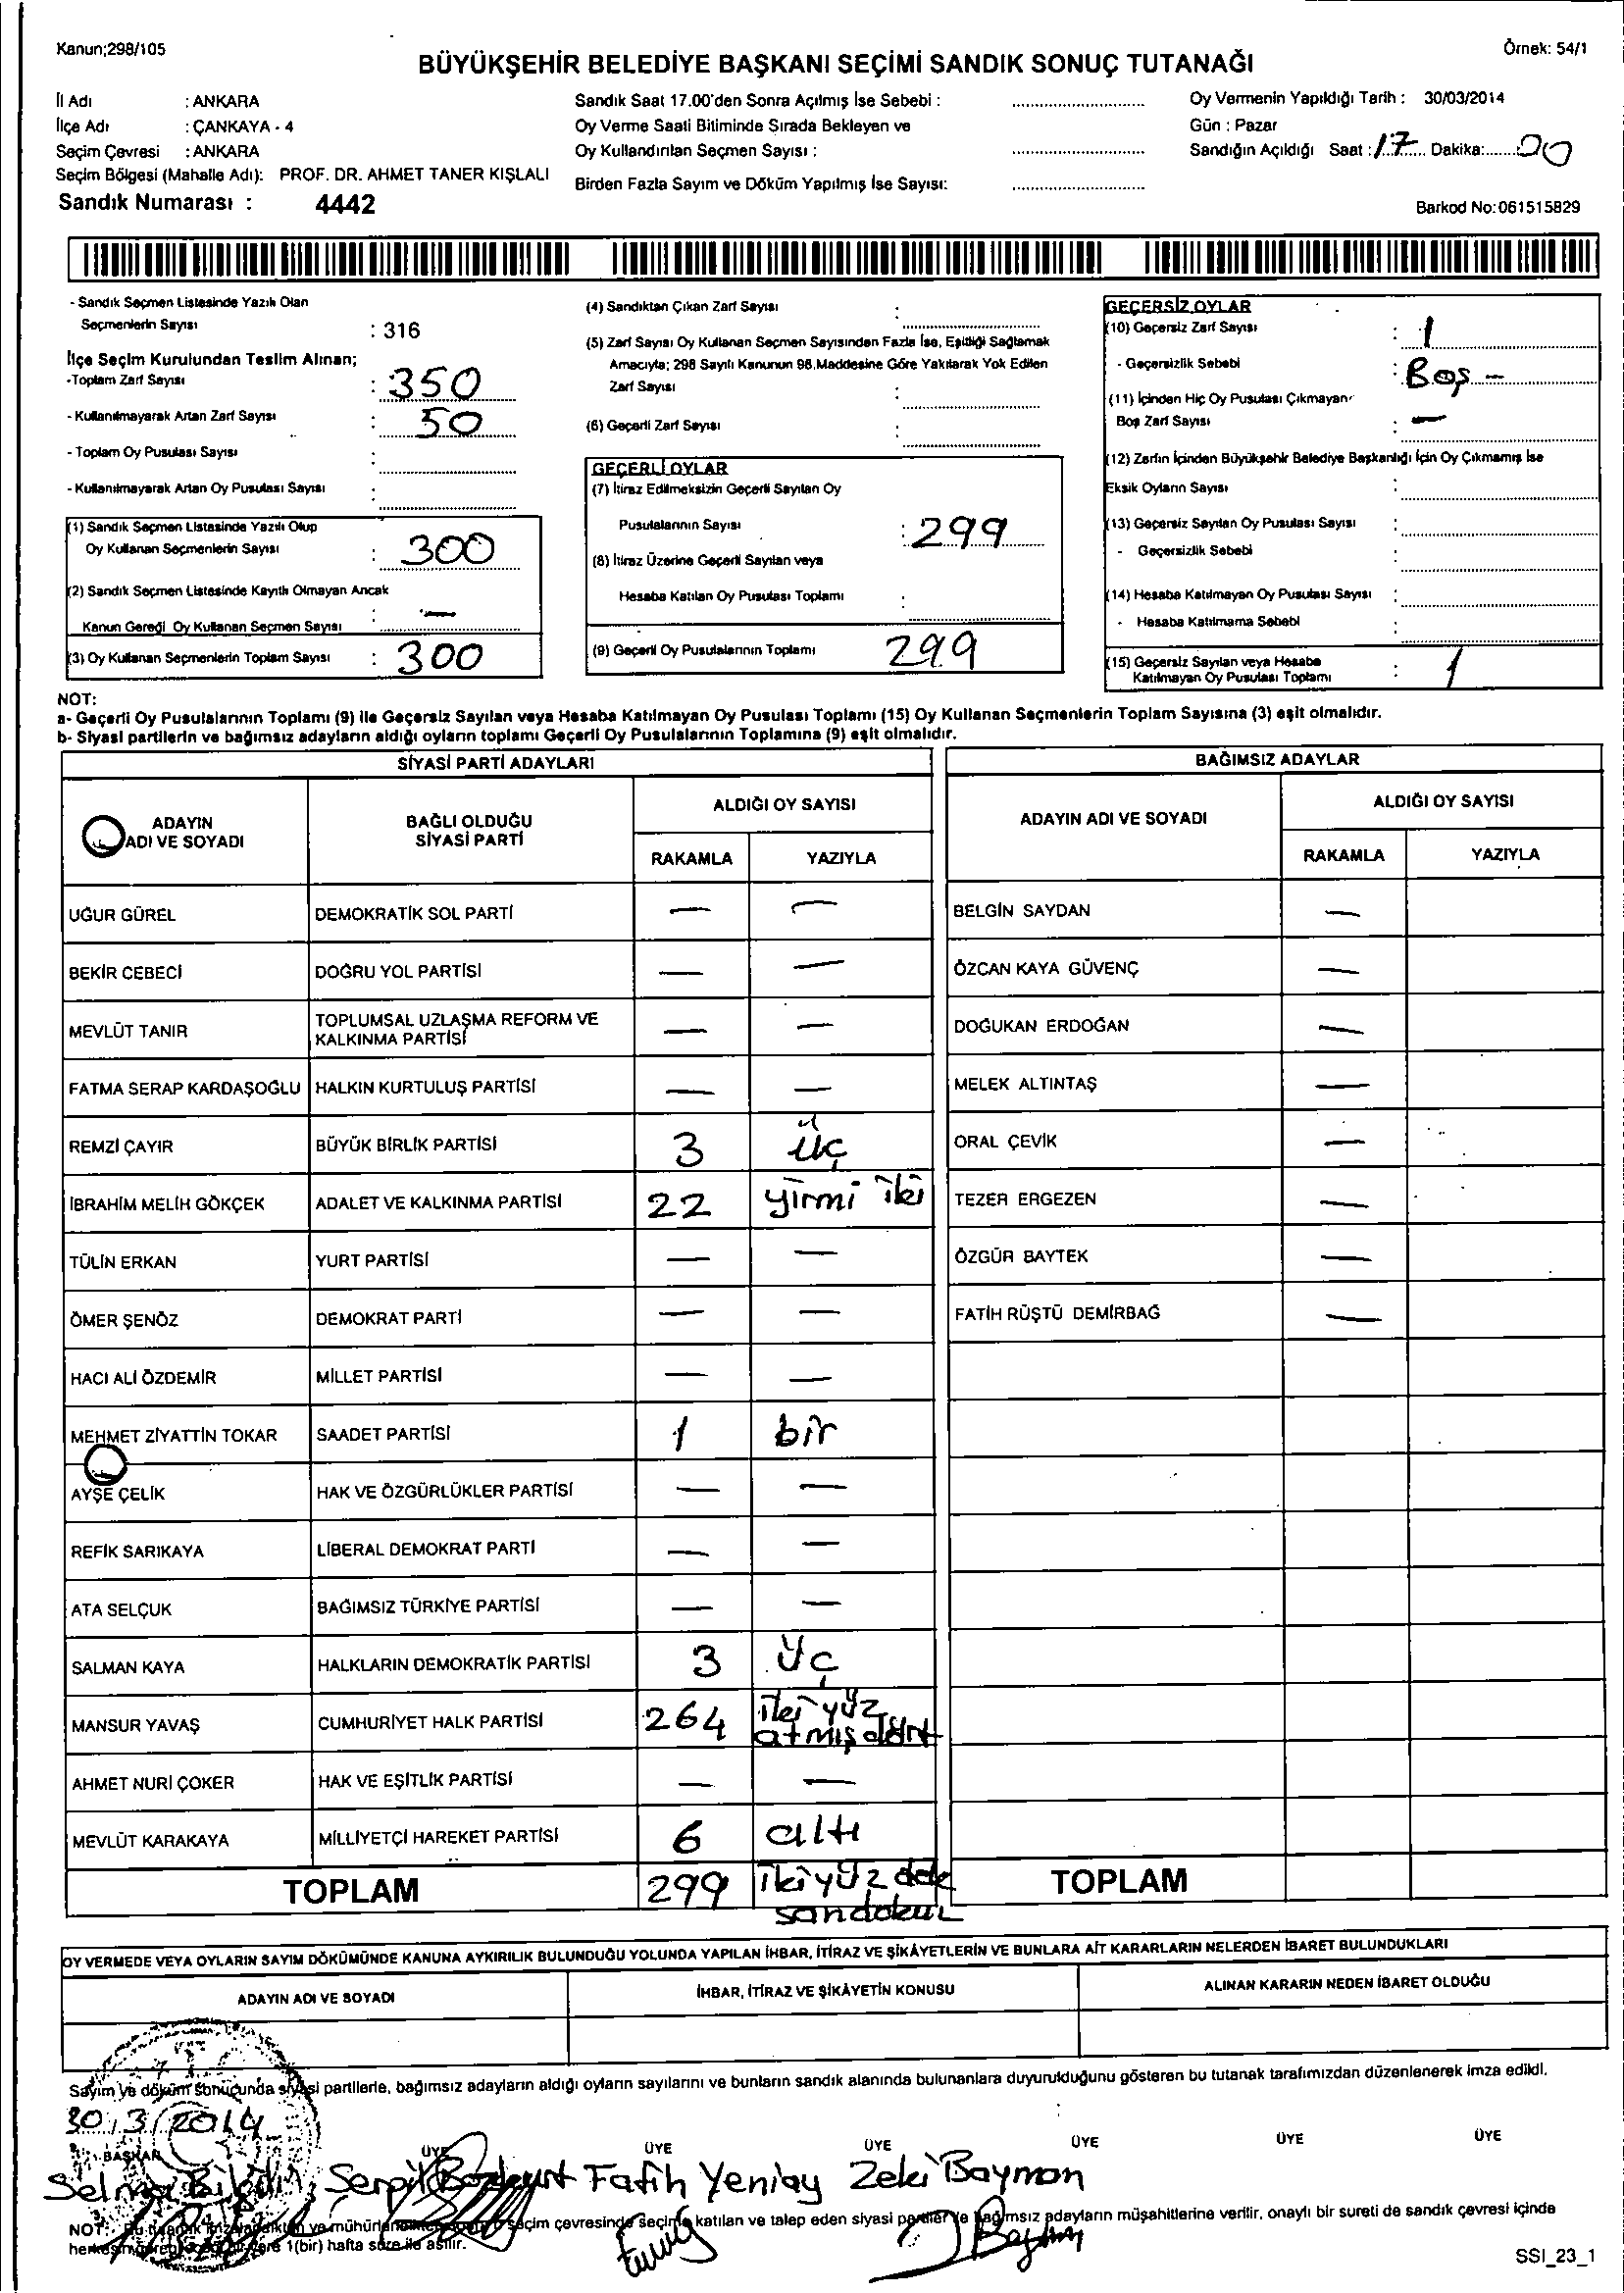 Kanun;298/105
Örnek: 54/1
BÜYÜKŞEHİR BELEDİYE BAŞKANI SEÇİMİ SANDIK SONUÇ TUTANAĞI
İl Adı : ANKARA
İlçe Adı : ÇANKAYA - 4
Seçim Çevresi : ANKARA
Seçim Bölgesi (Mahalle Adı): PROF. DR. AHMET TANER KIŞLALI
Sandık Numarası : 4442
Sandık Saat 17.00'den Sonra Açılmış İse Sebebi :
Oy Verme Saati Bitiminde Sırada Bekleyen ve
Oy Kullandırılan Seçmen Sayısı :
Birden Fazla Sayım ve Döküm Yapılmış İse Sayısı:
Oy Vermenin Yapıldığı Tarih : 30/03/2014
Gün : Pazar
Sandığın Açıldığı Saat : 17 Dakika: 00
Barkod No:061515829
- Sandık Seçmen Listesinde Yazılı Olan
Seçmenlerin Sayısı : 316
İlçe Seçim Kurulundan Teslim Alınan;
-Toplam Zarf Sayısı : 350
- Kullanılmayarak Artan Zarf Sayısı : 50
- Toplam Oy Pusulası Sayısı :
- Kullanılmayarak Artan Oy Pusulası Sayısı :
(1) Sandık Seçmen Listesinde Yazılı Olup
Oy Kullanan Seçmenlerin Sayısı : 300
(2) Sandık Seçmen Listesinde Kayıtlı Olmayan Ancak
Kanun Gereği Oy Kullanan Seçmen Sayısı : —
(3) Oy Kullanan Seçmenlerin Toplam Sayısı : 300
(4) Sandıktan Çıkan Zarf Sayısı :
(5) Zarf Sayısı Oy Kullanan Seçmen Sayısından Fazla İse, Eşitliği Sağlamak
Amacıyla; 298 Sayılı Kanunun 98.Maddesine Göre Yakılarak Yok Edilen
Zarf Sayısı :
(6) Geçerli Zarf Sayısı :
GEÇERLİ OYLAR
(7) İtiraz Edilmeksizin Geçerli Sayılan Oy
Pusulalarının Sayısı : 299
(8) İtiraz Üzerine Geçerli Sayılan veya
Hesaba Katılan Oy Pusulası Toplamı :
(9) Geçerli Oy Pusulalarının Toplamı 299
GEÇERSİZ OYLAR
(10) Geçersiz Zarf Sayısı : 1
- Geçersizlik Sebebi : Boş -
(11) İçinden Hiç Oy Pusulası Çıkmayan
Boş Zarf Sayısı : —
(12) Zarfın İçinden Büyükşehir Belediye Başkanlığı İçin Oy Çıkmamış İse
Eksik Oyların Sayısı :
(13) Geçersiz Sayılan Oy Pusulası Sayısı :
- Geçersizlik Sebebi :
(14) Hesaba Katılmayan Oy Pusulası Sayısı :
- Hesaba Katılmama Sebebi :
(15) Geçersiz Sayılan veya Hesaba
Katılmayan Oy Pusulası Toplamı : 1
NOT:
a- Geçerli Oy Pusulalarının Toplamı (9) ile Geçersiz Sayılan veya Hesaba Katılmayan Oy Pusulası Toplamı (15) Oy Kullanan Seçmenlerin Toplam Sayısına (3) eşit olmalıdır.
b- Siyasi partilerin ve bağımsız adayların aldığı oyların toplamı Geçerli Oy Pusulalarının Toplamına (9) eşit olmalıdır.
SİYASİ PARTİ ADAYLARI
ADAYIN
ADI VE SOYADI
BAĞLI OLDUĞU
SİYASİ PARTİ
ALDIĞI OY SAYISI
RAKAMLA YAZIYLA
UĞUR GÜREL DEMOKRATİK SOL PARTİ — —
BEKİR CEBECİ DOĞRU YOL PARTİSİ — —
MEVLÜT TANIR TOPLUMSAL UZLAŞMA REFORM VE
KALKINMA PARTİSİ — —
FATMA SERAP KARDAŞOĞLU HALKIN KURTULUŞ PARTİSİ — —
REMZİ ÇAYIR BÜYÜK BİRLİK PARTİSİ 3 üç
İBRAHİM MELİH GÖKÇEK ADALET VE KALKINMA PARTİSİ 22 yirmi iki
TÜLİN ERKAN YURT PARTİSİ — —
ÖMER ŞENÖZ DEMOKRAT PARTİ — —
HACI ALİ ÖZDEMİR MİLLET PARTİSİ — —
MEHMET ZİYATTİN TOKAR SAADET PARTİSİ 1 bir
AYŞE ÇELİK HAK VE ÖZGÜRLÜKLER PARTİSİ — —
REFİK SARIKAYA LİBERAL DEMOKRAT PARTİ — —
ATA SELÇUK BAĞIMSIZ TÜRKİYE PARTİSİ — —
SALMAN KAYA HALKLARIN DEMOKRATİK PARTİSİ 3 üç
MANSUR YAVAŞ CUMHURİYET HALK PARTİSİ 264 iki yüz
atmış dört
AHMET NURİ ÇOKER HAK VE EŞİTLİK PARTİSİ — —
MEVLÜT KARAKAYA MİLLİYETÇİ HAREKET PARTİSİ 6 altı
TOPLAM 299 iki yüz
BAĞIMSIZ ADAYLAR
ADAYIN ADI VE SOYADI
ALDIĞI OY SAYISI
RAKAMLA YAZIYLA
BELGİN SAYDAN —
ÖZCAN KAYA GÜVENÇ —
DOĞUKAN ERDOĞAN —
MELEK ALTINTAŞ —
ORAL ÇEVİK —
TEZER ERGEZEN —
ÖZGÜR BAYTEK —
FATİH RÜŞTÜ DEMİRBAĞ —
TOPLAM
OY VERMEDE VEYA OYLARIN SAYIM DÖKÜMÜNDE KANUNA AYKIRILIK BULUNDUĞU YOLUNDA YAPILAN İHBAR, İTİRAZ VE ŞİKÂYETLERİN VE BUNLARA AİT KARARLARIN NELERDEN İBARET BULUNDUKLARI
ADAYIN ADI VE SOYADI
İHBAR, İTİRAZ VE ŞİKÂYETİN KONUSU
ALINAN KARARIN NEDEN İBARET OLDUĞU
Sayım ve döküm sonucunda siyasi partilerle, bağımsız adayların aldığı oyların sayılarını ve bunların sandık alanında bulunanlara duyurulduğunu gösteren bu tutanak tarafımızdan düzenlenerek imza edildi.
30/3/2014
BAŞKAN ÜYE ÜYE ÜYE ÜYE ÜYE ÜYE
Serpil Bozkurt Fatih Yeniay Zeki Bayman
seçim çevresinde seçime katılan ve talep eden siyasi partiler ile bağımsız adayların müşahitlerine verilir, onaylı bir sureti de sandık çevresi içinde
1(bir) hafta süre ile asılır.
SSI_23_1